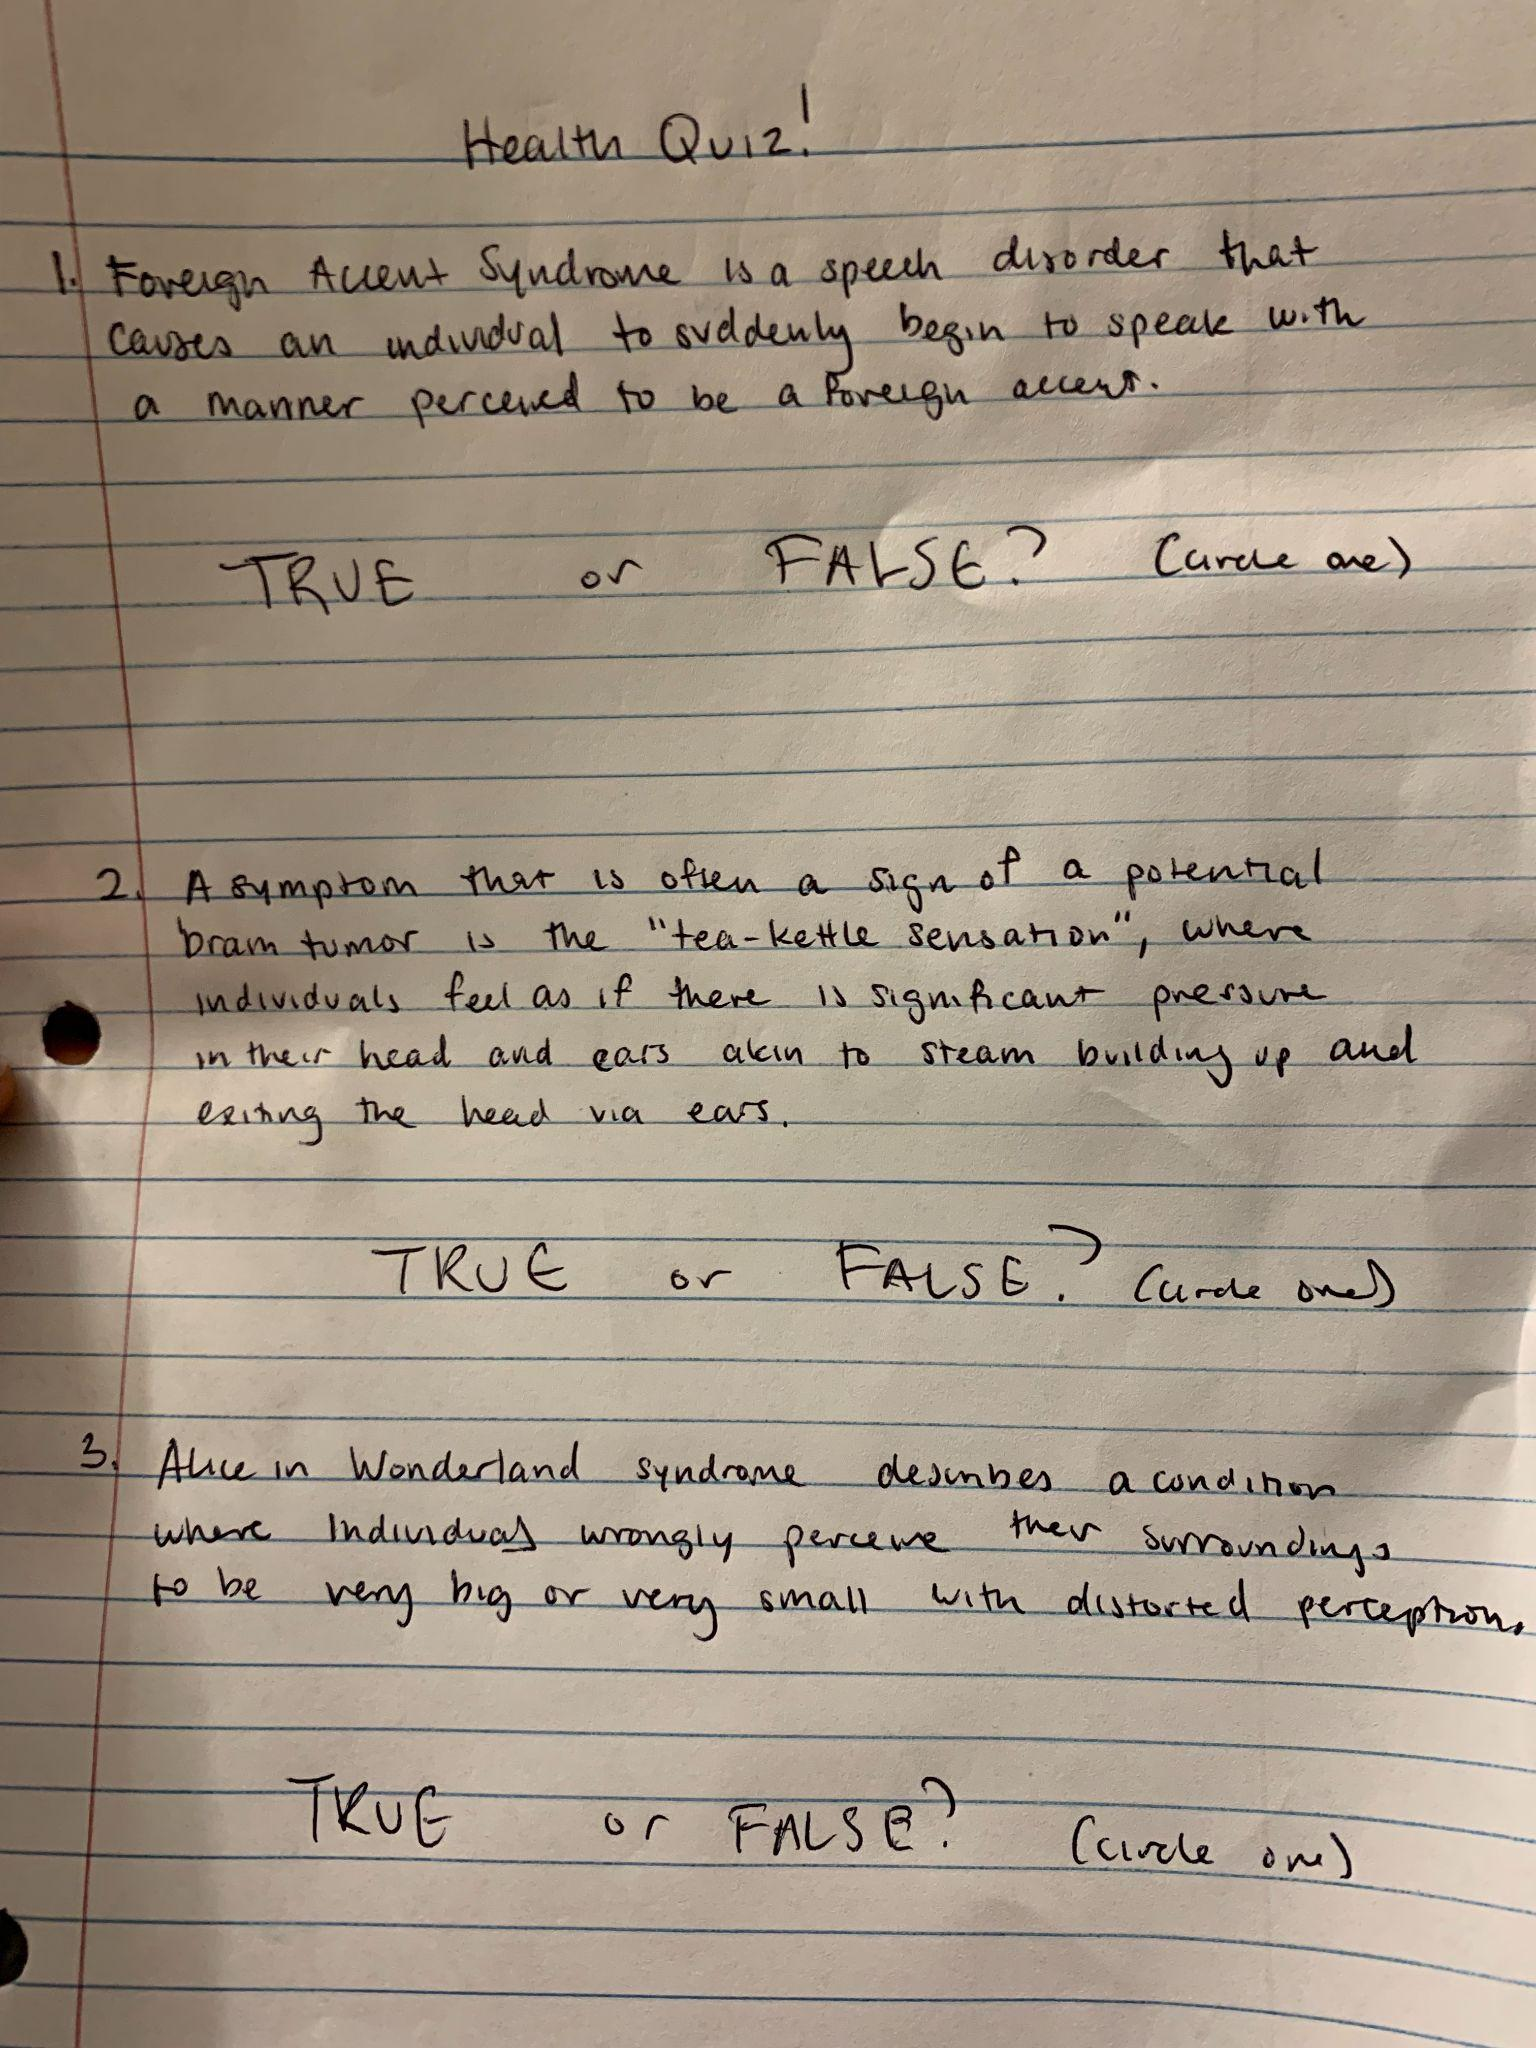 Health Quiz!
1. Foreign Accent Syndrome is a speech disorder that
causes an individual to suddenly begin to speak with
a manner perceived to be a foreign accent.
TRUE or FALSE? (circle one)
2. A symptom that is often a sign of a potential
brain tumor is the "tea-kettle sensation", where
individuals feel as if there is significant pressure
in their head and ears akin to steam building up and
exiting the head via ears.
TRUE or FALSE? (circle one)
3. Alice in Wonderland syndrome describes a condition
where individuals wrongly perceive their surroundings
to be very big or very small with distorted perception.
TRUE or FALSE? (circle one)